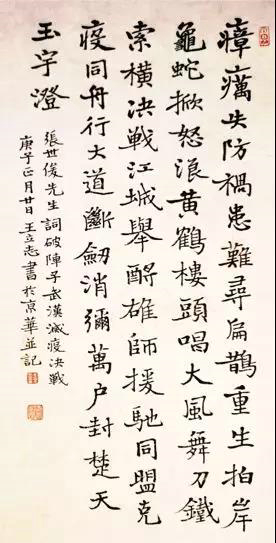 瘴癘失防禍患難尋扁鵲重生拍岸
龜蛇掀怒浪黄鶴樓頭唱大風舞刀鐵
索横决戦江城舉酹雄師援馳同盟克
疫同舟行大道斷劒消彌萬户封楚天
玉宇澄
張世俊先生詞破陣子武漢滅疫决戦
庚子正月廿日王立志書於京華並記